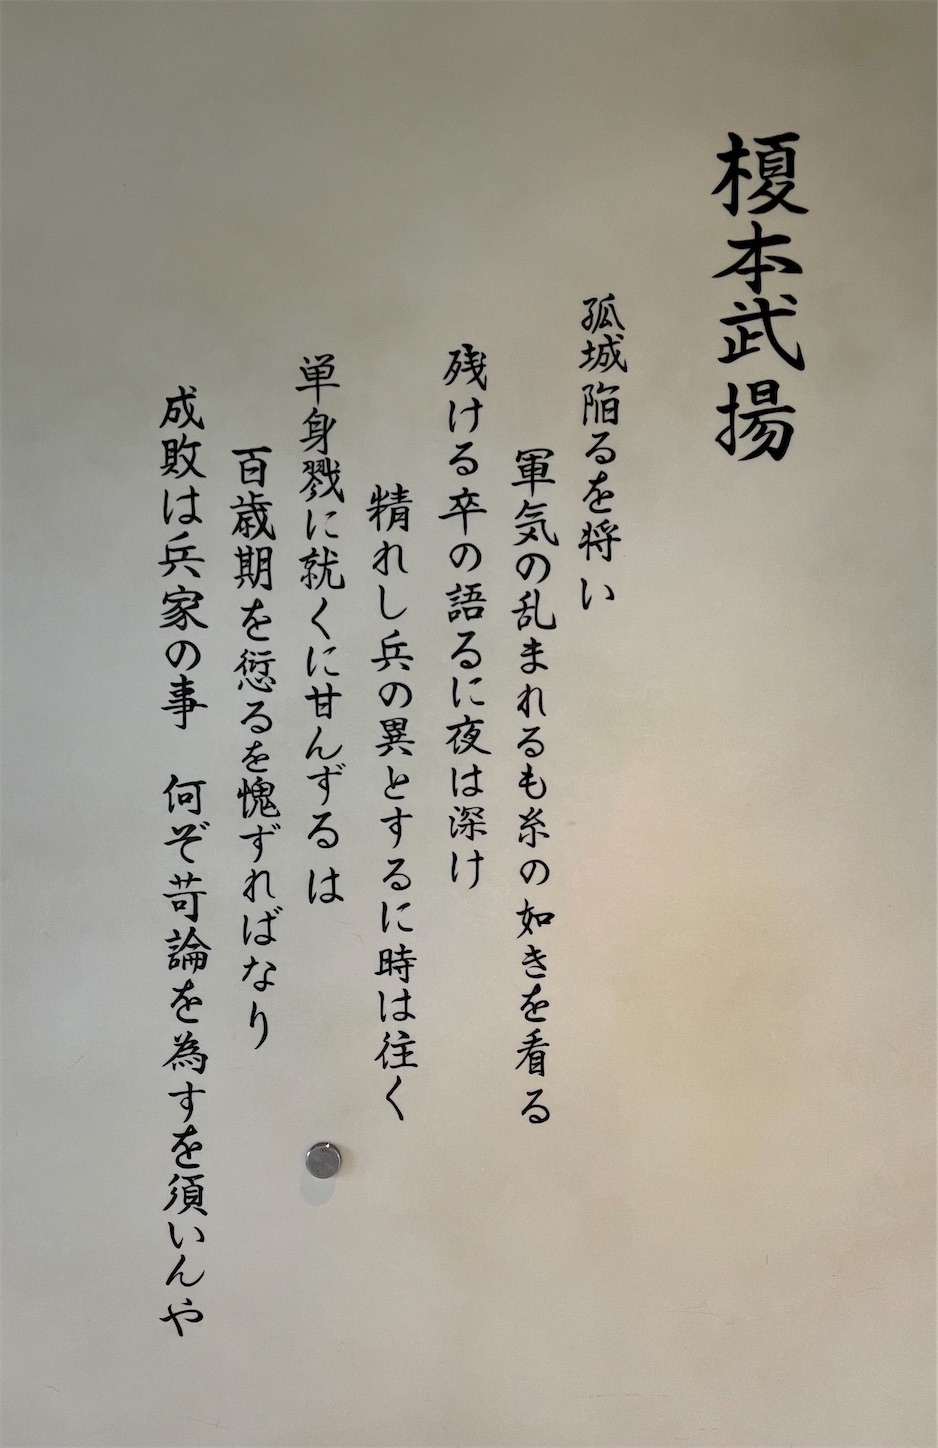 榎本武揚
孤城陥るを将い
軍気の乱まれるも糸の如きを看る
残ける卒の語るに夜は深け
精れし兵の異とするに時は往く
単身戮に就くに甘んずるは
百歳期を愆るを愧ずればなり
成敗は兵家の事　何ぞ苛論を為すを須いんや